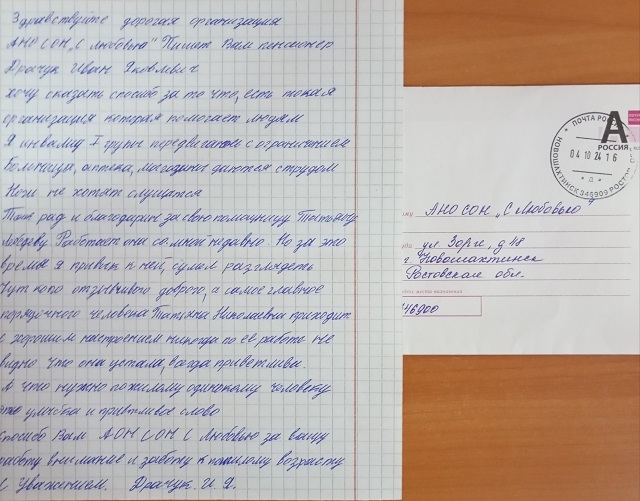 Здравствуйте дорогая организация
АНО СОН „С Любовью" Пишет Вам пенсионер
Драчук Иван Яковлевич
хочу сказать спосибо за то что, есть такая
организация которая помогает людям
Я инвалид I групы передвигаюсь с ограничением
Больница, аптека, магозины даются с трудом
Ноги не хотят слушатся
Так рад и благодарин за свою помощницу Татьяну
Лебедеву Работает она со мной недавно. Но за это
время я привык к ней, сумел разглядеть
чуткого отзывчивого доброго, а самое главное
порядочного человека Татьяна Николаевна приходит
с хорошим настроением никогда по её работе не
видно что она устала, всегда приветлива.
А что нужно пожилому одинокому человеку
это улыбка и приветливое слово
спосибо Вам АОН СОН С Любовью за вашу
работу внимание и заботу к пожилому возрасту
С Уважением. Драчук. И. Я.
ПОЧТА РОССИИ
НОВОШАХТИНСК 346909 РОСТОВ
04 10 24 16
А
РОССИЯ
АНО СОН „С Любовью"
ул. Зорге, д 48
г. Новошахтинск
Ростовская обл.
346900